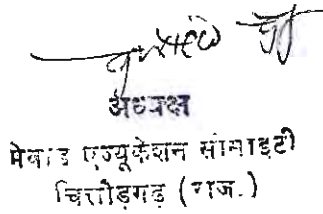 अध्यक्ष
मेवाड एज्यूकेशन सोसाइटी
चित्तौड़गढ़ (राज.)